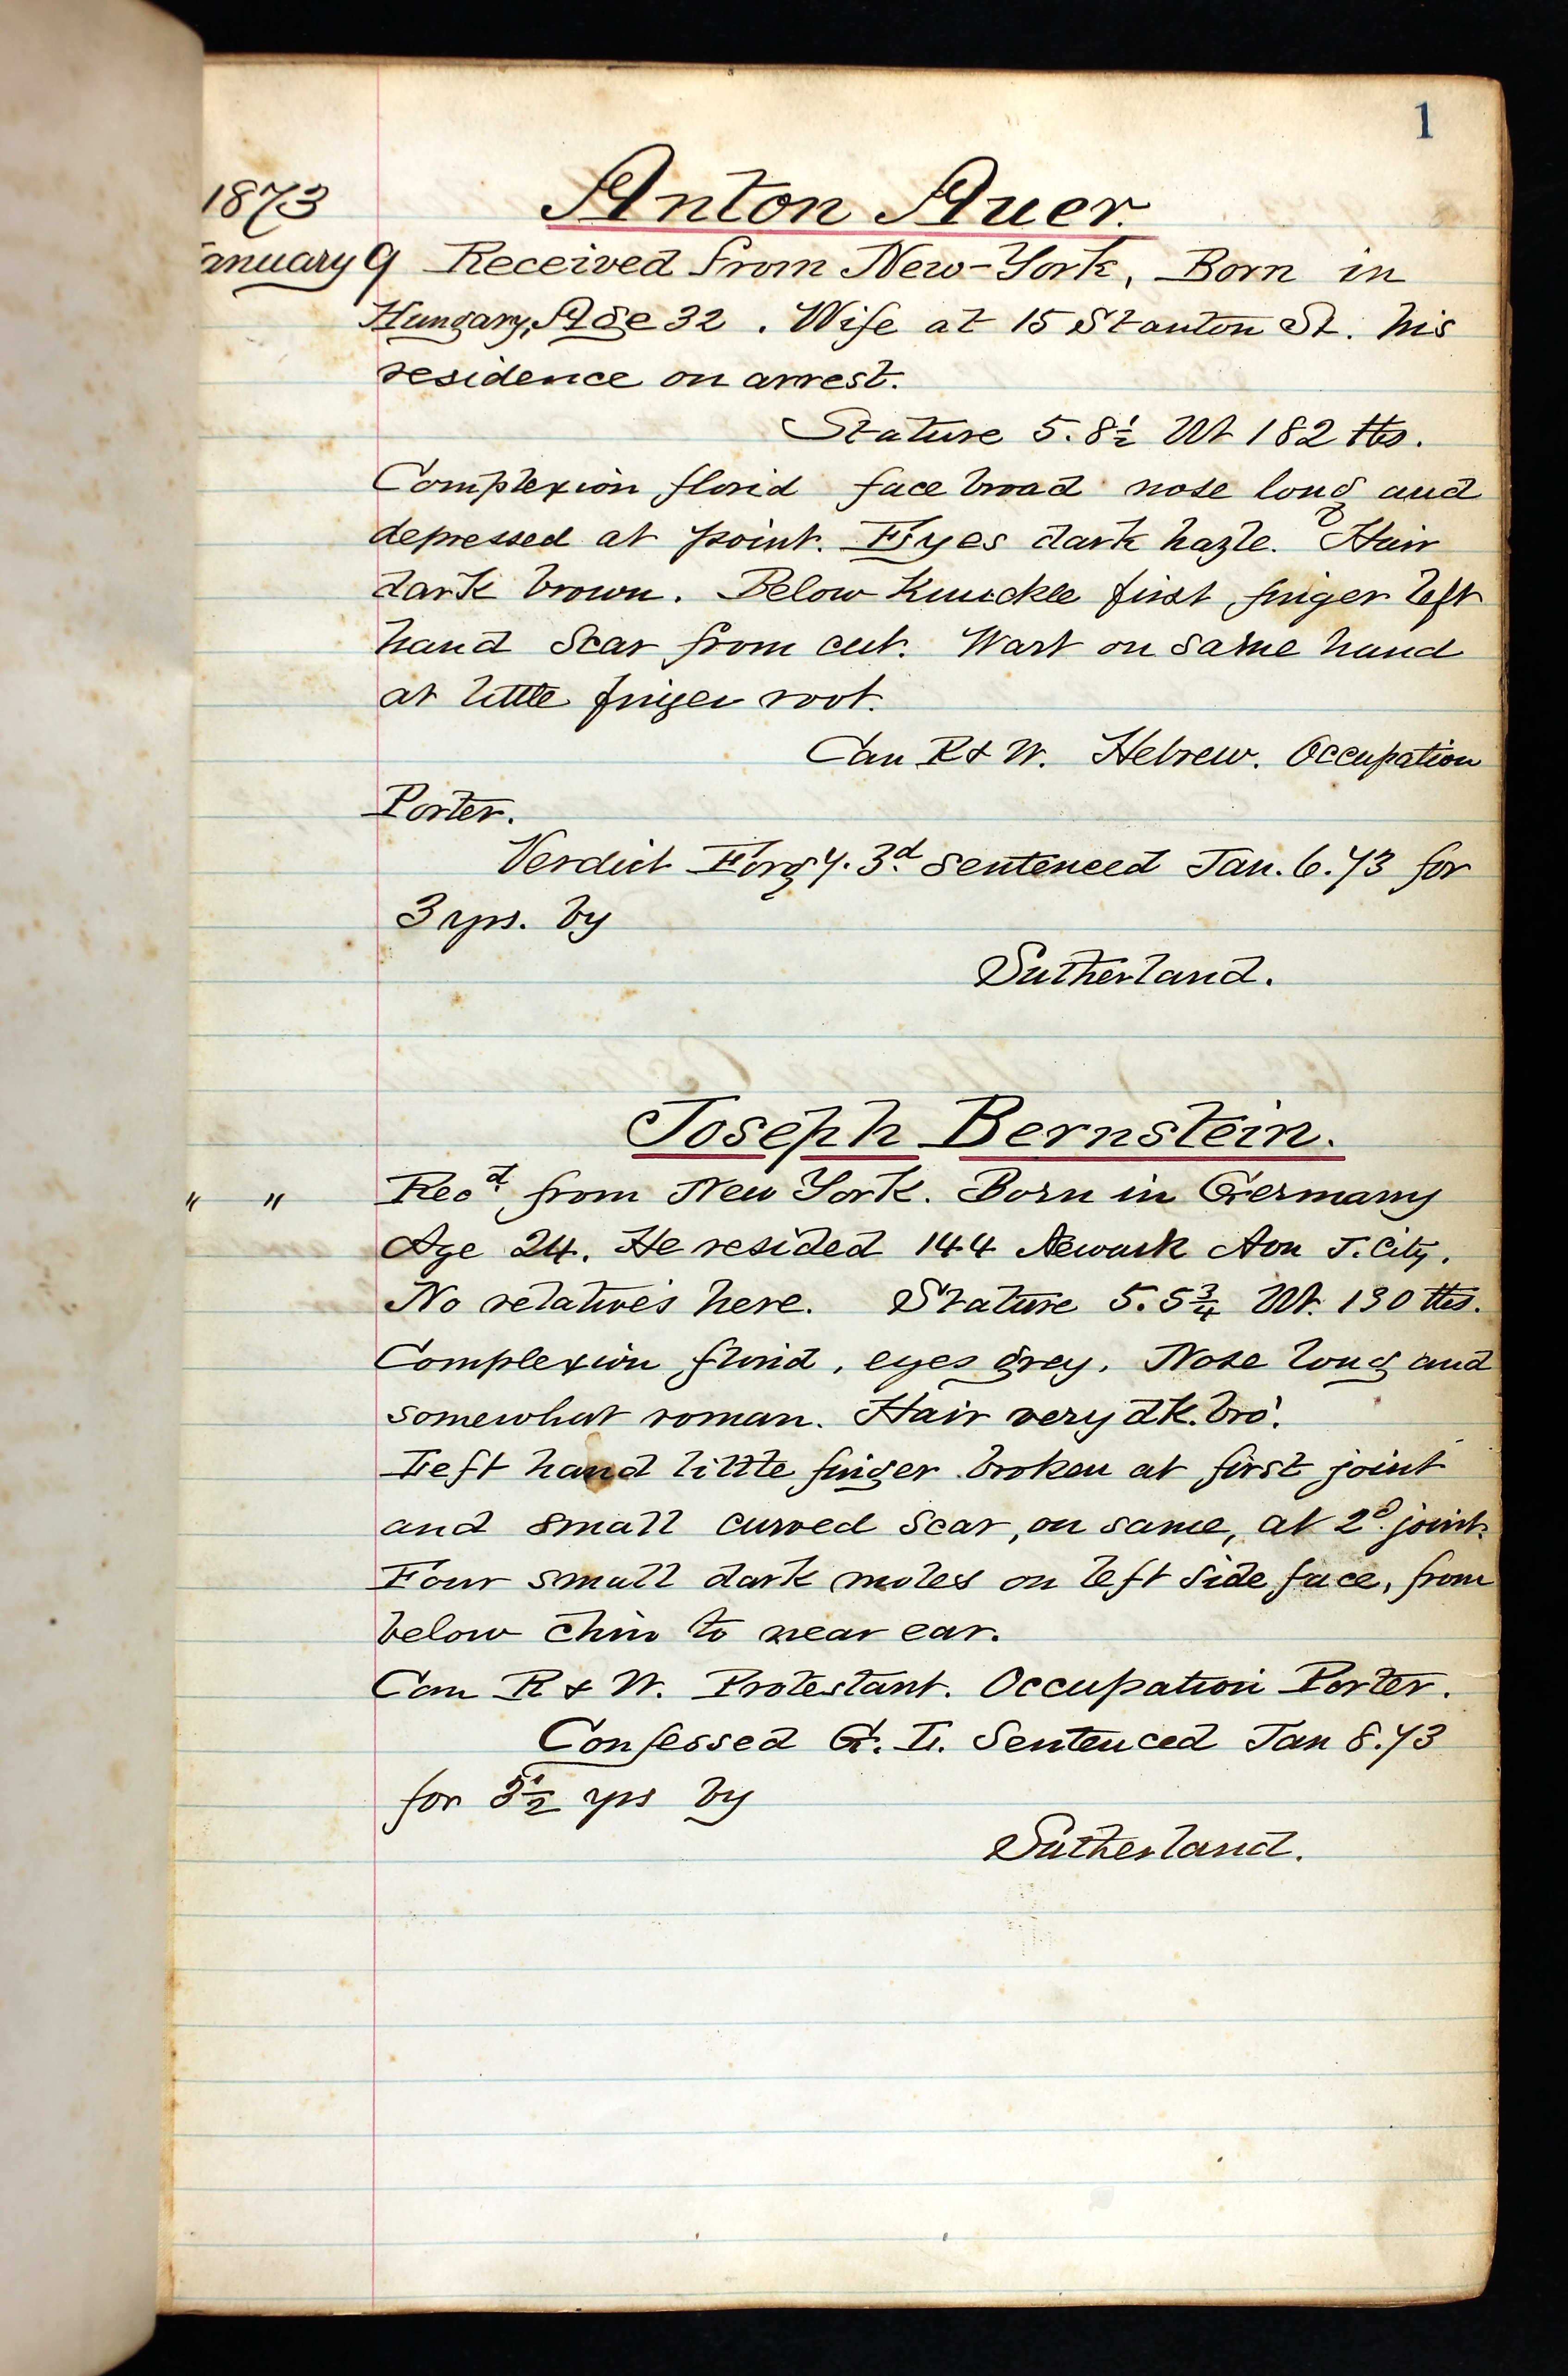 1
1873
Anton Auer.
anuary 9 Received from New-York, Born in
Hungary, Age 32. Wife at 15 Stanton St. his
residence on arrest.
Stature 5.8½ Wt 182 lbs.
Complexion florid face broad nose long and
depressed at point. Eyes dark hazle. Hair
dark brown. Below Knuckle first finger left
hand Scar from cut. Wart on same hand
at little finger root.
Can R & W. Hebrew. Occupation
Porter.
Verdict Forgy. 3d sentenced Jan. 6. 73 for
3 yrs. by
Sutherland.
Joseph Bernstein.
" " Recd. from New York. Born in Germany
Age 24. He resided 144 Newark Ave J. City.
No relatives here. Stature 5.5¾ Wt. 130 lbs.
Complexion florid, eyes grey. Nose long and
somewhat roman. Hair very dk. bro.
Left hand little finger broken at first joint
and small curved Scar, on same, at 2d. joint.
Four small dark moles on left side face, from
below chin to near ear.
Can R & W. Protestant. Occupation Porter.
Confessed G. L. Sentenced Jan 8. 73
for ½ yrs by
Sutherland.